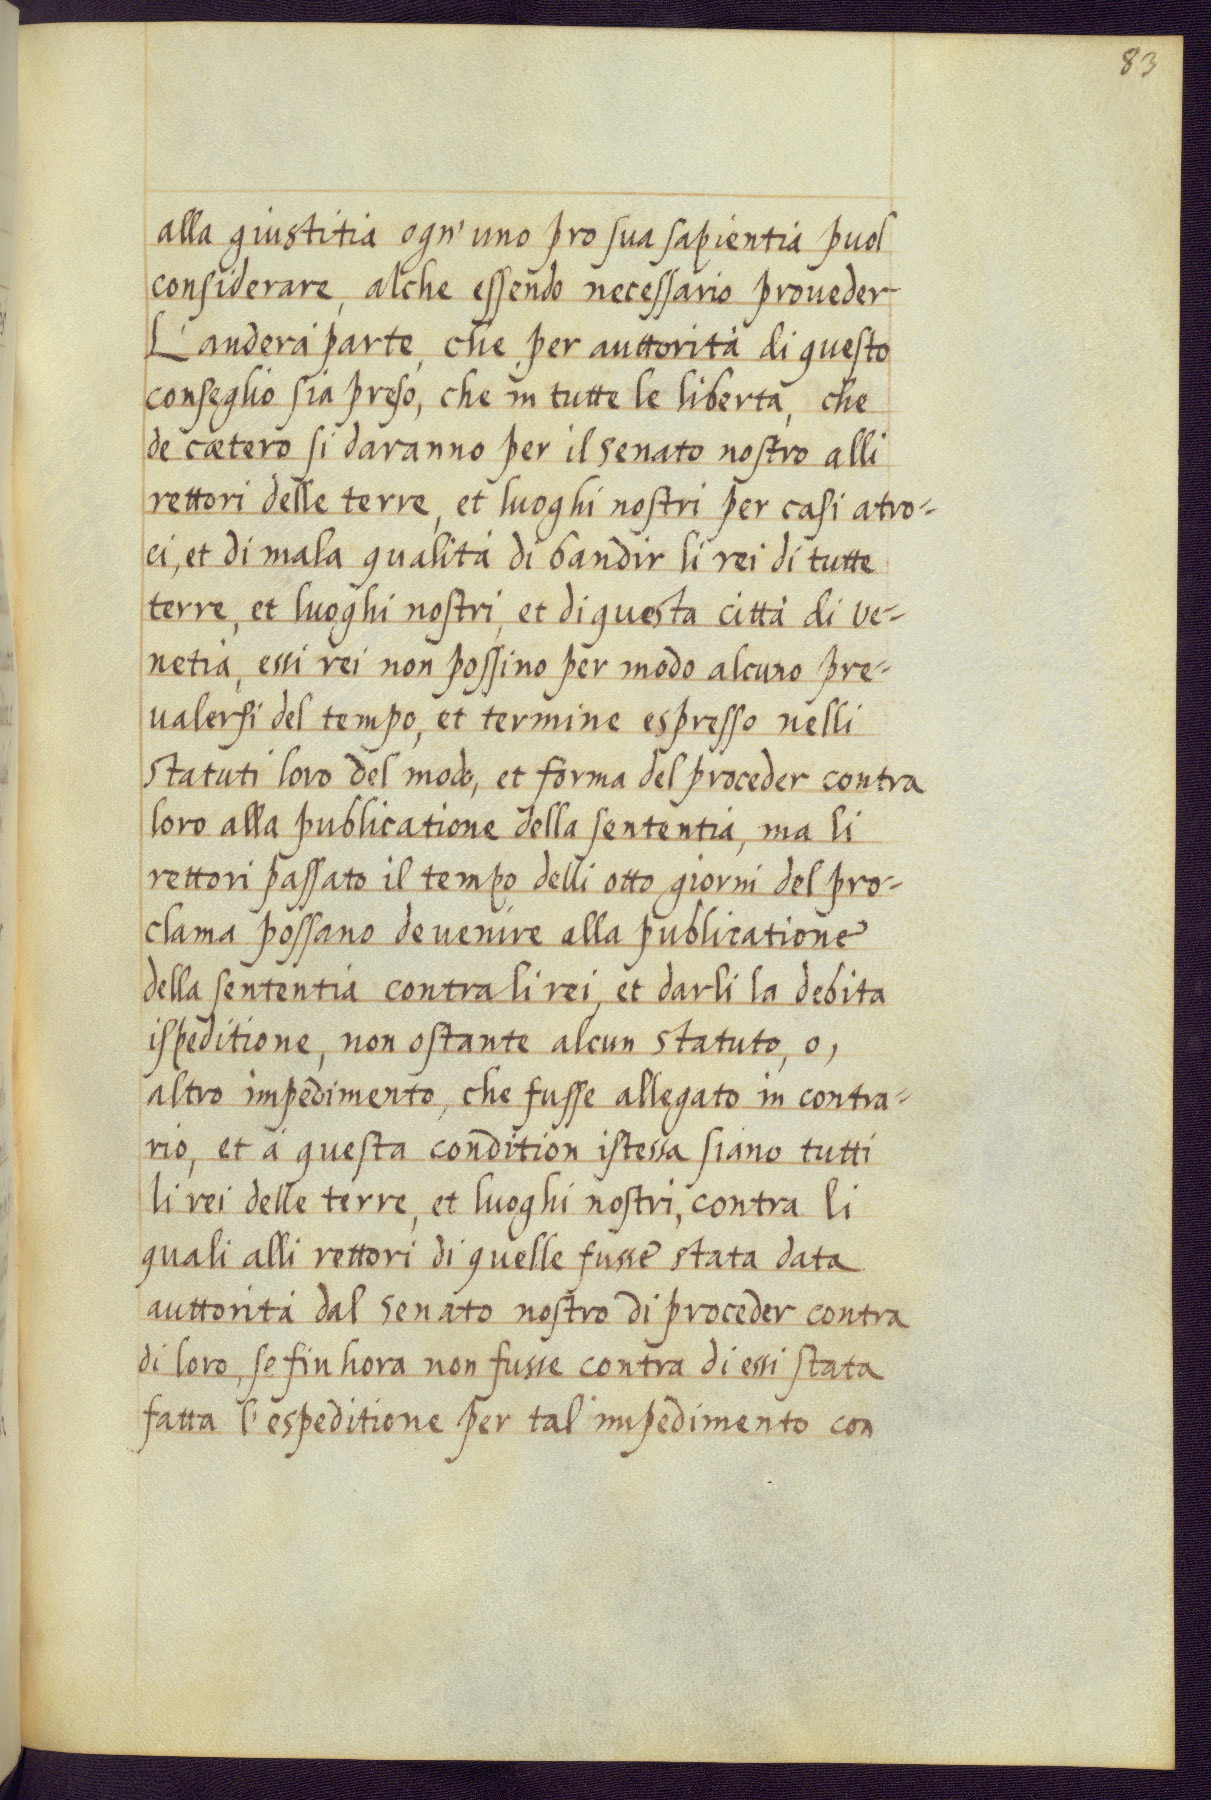 83
alla giustitia ogn'uno pro sua sapientia puol
considerare, alche essendo necessario proueder
L'anderà parte, che per auttorità di questo
conseglio sia preso, che in tutte le libertà, che
de cætero si daranno per il senato nostro alli
rettori delle terre, et luoghi nostri per casi atro-
ci, et di mala qualità di bandir li rei di tutte
terre, et luoghi nostri, et di questa città di Ve-
netia, essi rei non possino per modo alcuno pre-
ualersi del tempo, et termine espresso nelli
statuti loro del modo, et forma del proceder contra
loro alla publicatione della sententia, ma li
rettori passato il tempo delli otto giorni del pro-
clama possano deuenire alla publicatione
della sententia contra li rei, et darli la debita
ispeditione, non ostante alcun statuto, o,
altro impedimento, che fusse allegato in contra-
rio, et à questa condition istessa siano tutti
li rei delle terre, et luoghi nostri, contra li
quali alli rettori di quelle fusse stata data
auttorità dal senato nostro di proceder contra
di loro, se fin hora non fusse contra di essi stata
fatta l'espeditione per tal impedimento con